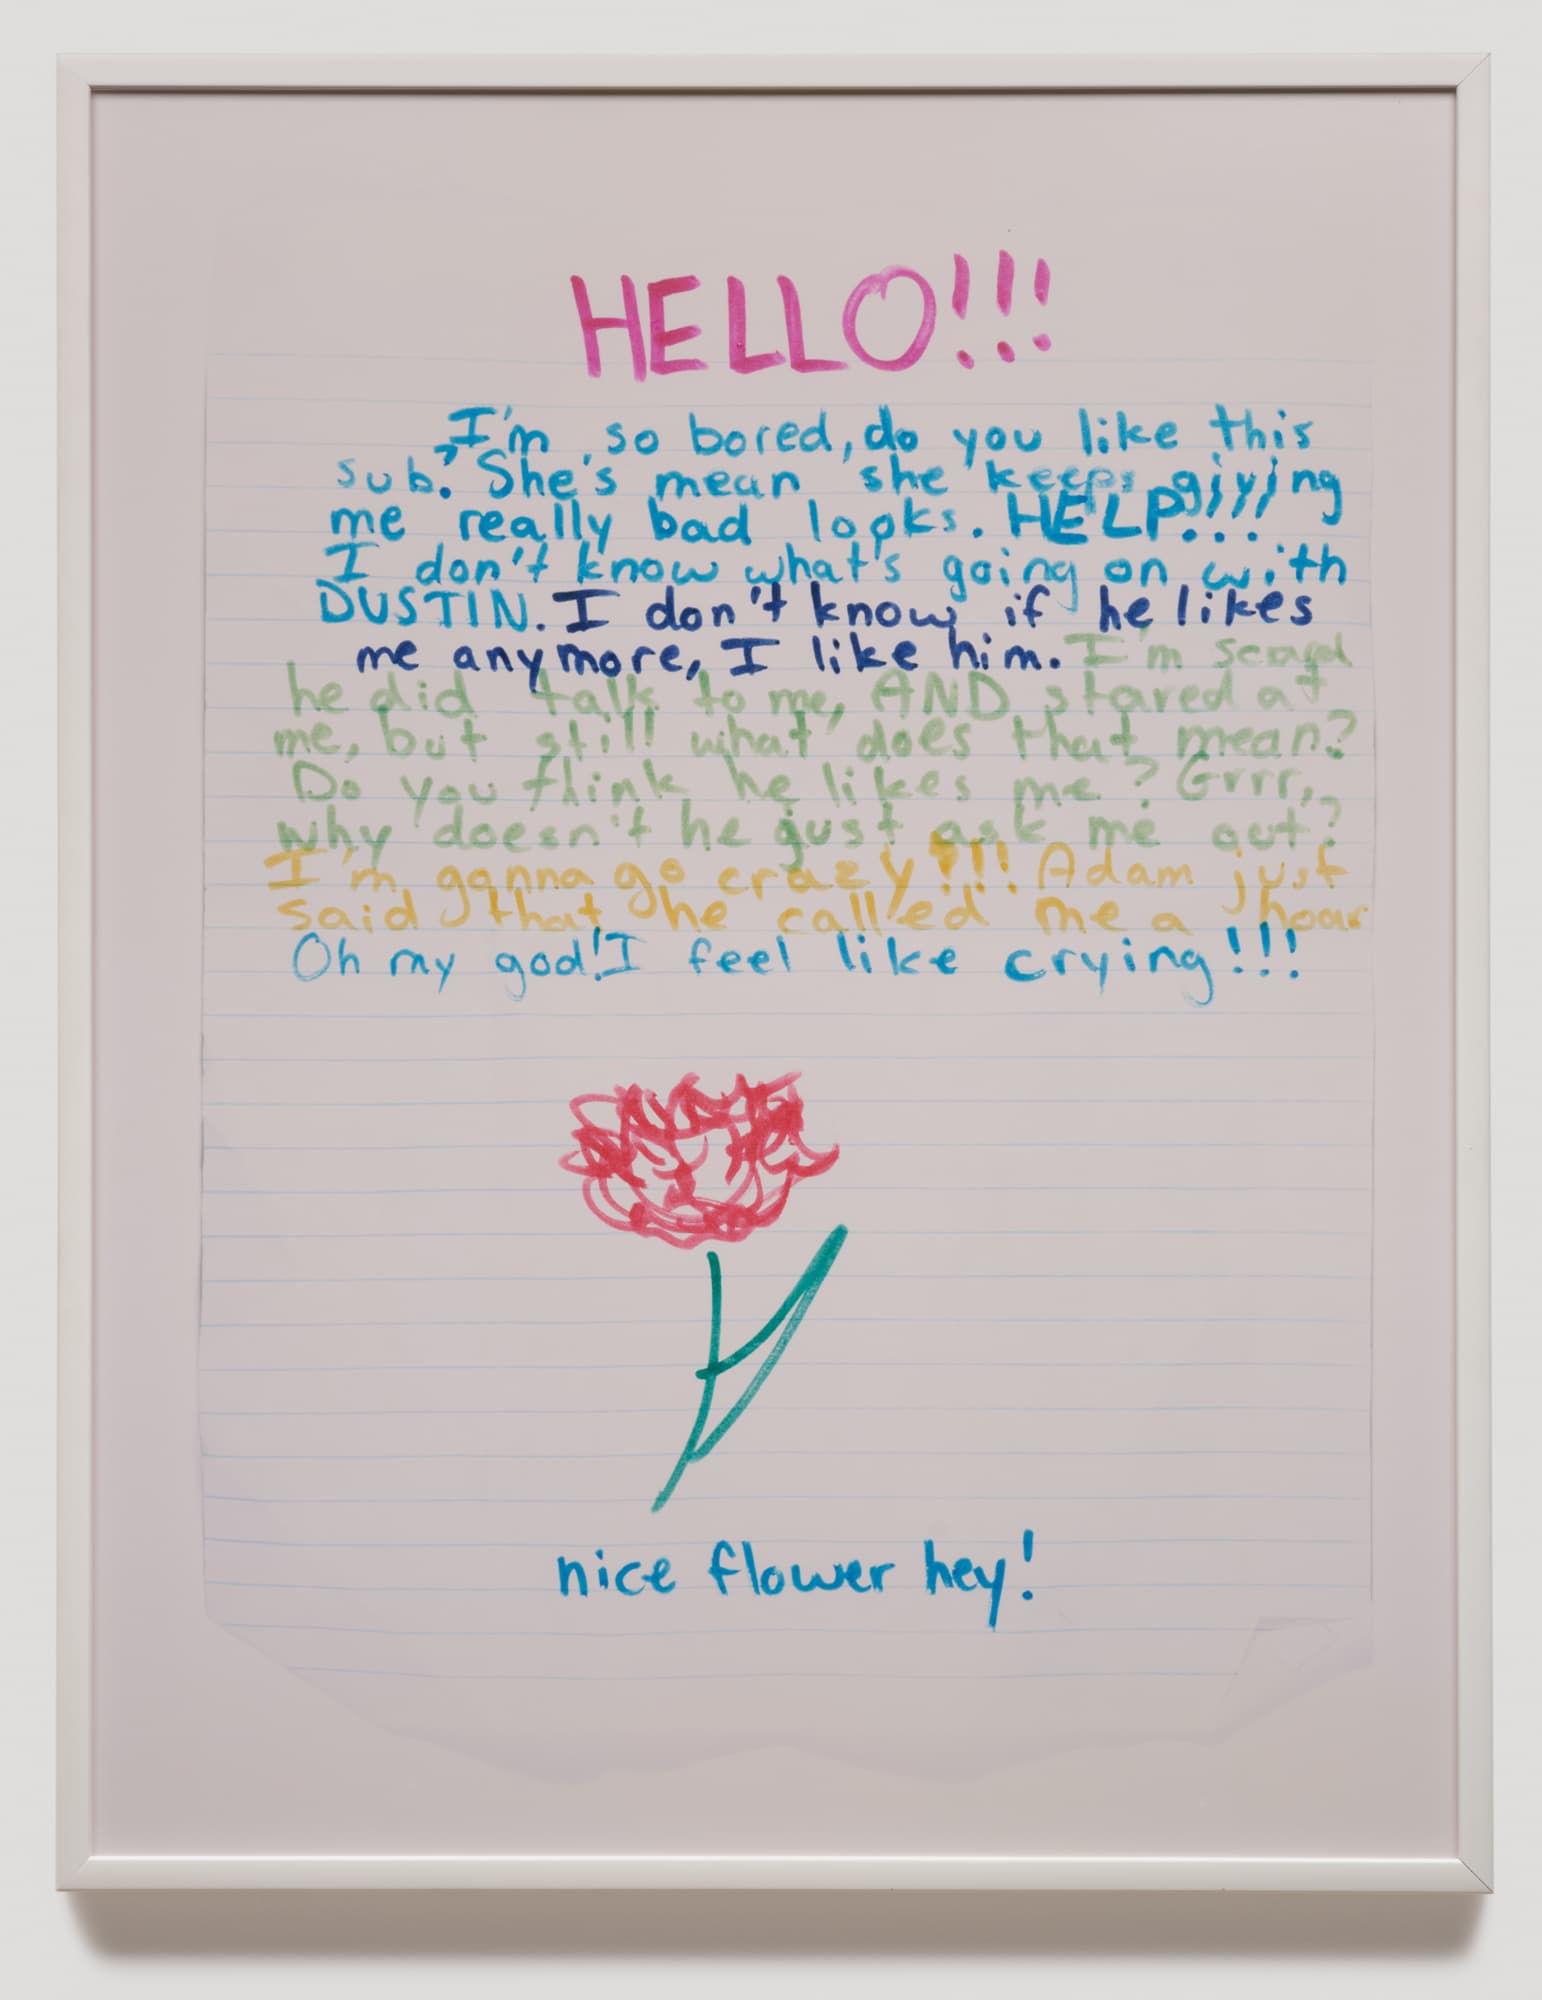 HELLO!!!
I'm so bored, do you like this
sub? She's mean she keeps giving
me really bad looks. HELP!!!
I don't know what's going on with
DUSTIN. I don't know if he likes
me anymore, I like him. I'm scared
he did talk to me, AND stared at
me, but still what does that mean?
Do you think he likes me? Grrr,
why doesn't he just ask me out?
I'm gonna go crazy!!! Adam just
said that he called me a hoar
Oh my god! I feel like crying!!!
nice flower hey!